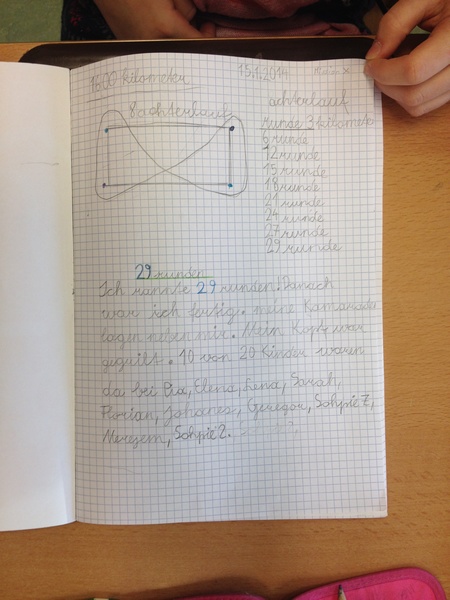 1600 kilometer
15.1.2014
8achterlauf
achterlauf
runde 3 kilomete
6 runde
12 runde
15 runde
18 runde
21 runde
24 runde
27 runde
29 runde
29 runden
Ich rannte 29 runden! Danach
war ich fertig. meine Kamarade
lagen neben mir. Mein Kopf war
10 von 20 Kinder waren
da bei Pia, Elena, Lena, Sarah,
Florian, Johanes, Geregor, Sohpie 1,
Merejem, Sohpie 2.